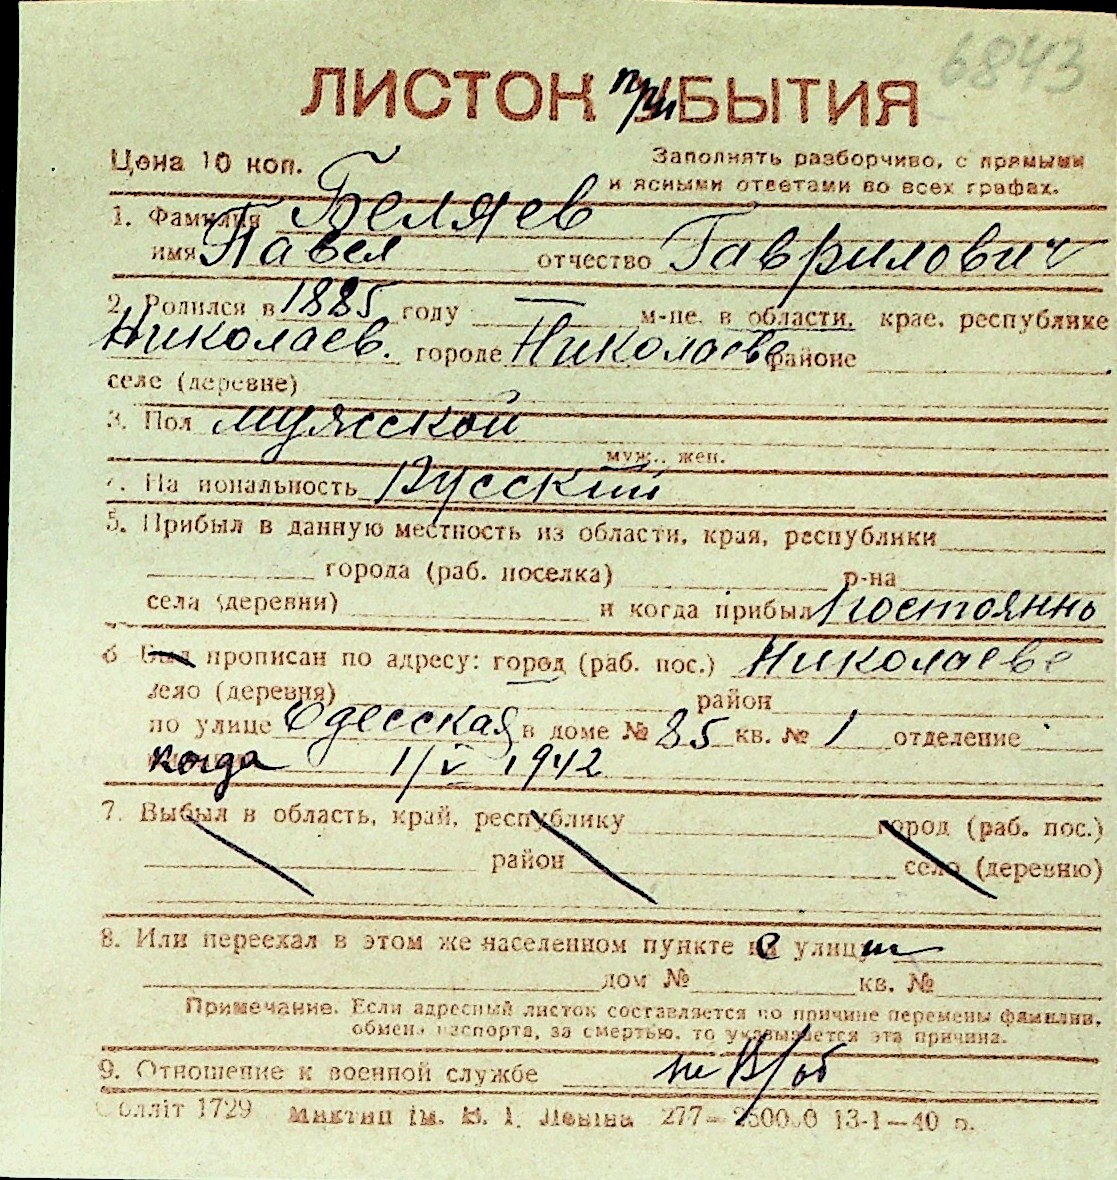 6843
ЛИСТОК приБЫТИЯ
Цена 10 коп.
Заполнять разборчиво, с прямыми
и ясными ответами во всех графах.
1. Фамилия Беляев
имя Павел отчество Гаврилович
2. Родился в 1885 году — м-це, в области, крае, республике
Николаев. городе Николаеве районе
селе (деревне)
3. Пол мужской
муж., жен.
4. Национальность Русский
5. Прибыл в данную местность из области, края, республики
города (раб. поселка) р-на
села (деревни) и когда прибыл постоянно
6 Был прописан по адресу: город (раб. пос.) Николаеве
село (деревня) район
по улице Одесская в доме № 85 кв. № 1 отделение
когда 1/V 1942
7. Выбыл в область, край, республику город (раб. пос.)
район село (деревню)
8. Или переехал в этом же населенном пункте с улицы
дом № кв. №
Примечание. Если адресный листок составляется по причине перемены фамилии,
обмена паспорта, за смертью, то указывается эта причина.
9. Отношение к военной службе не В/об
Облліт 1729 Миктип ім. В. І. Леніна 277— 13-1—40 р.